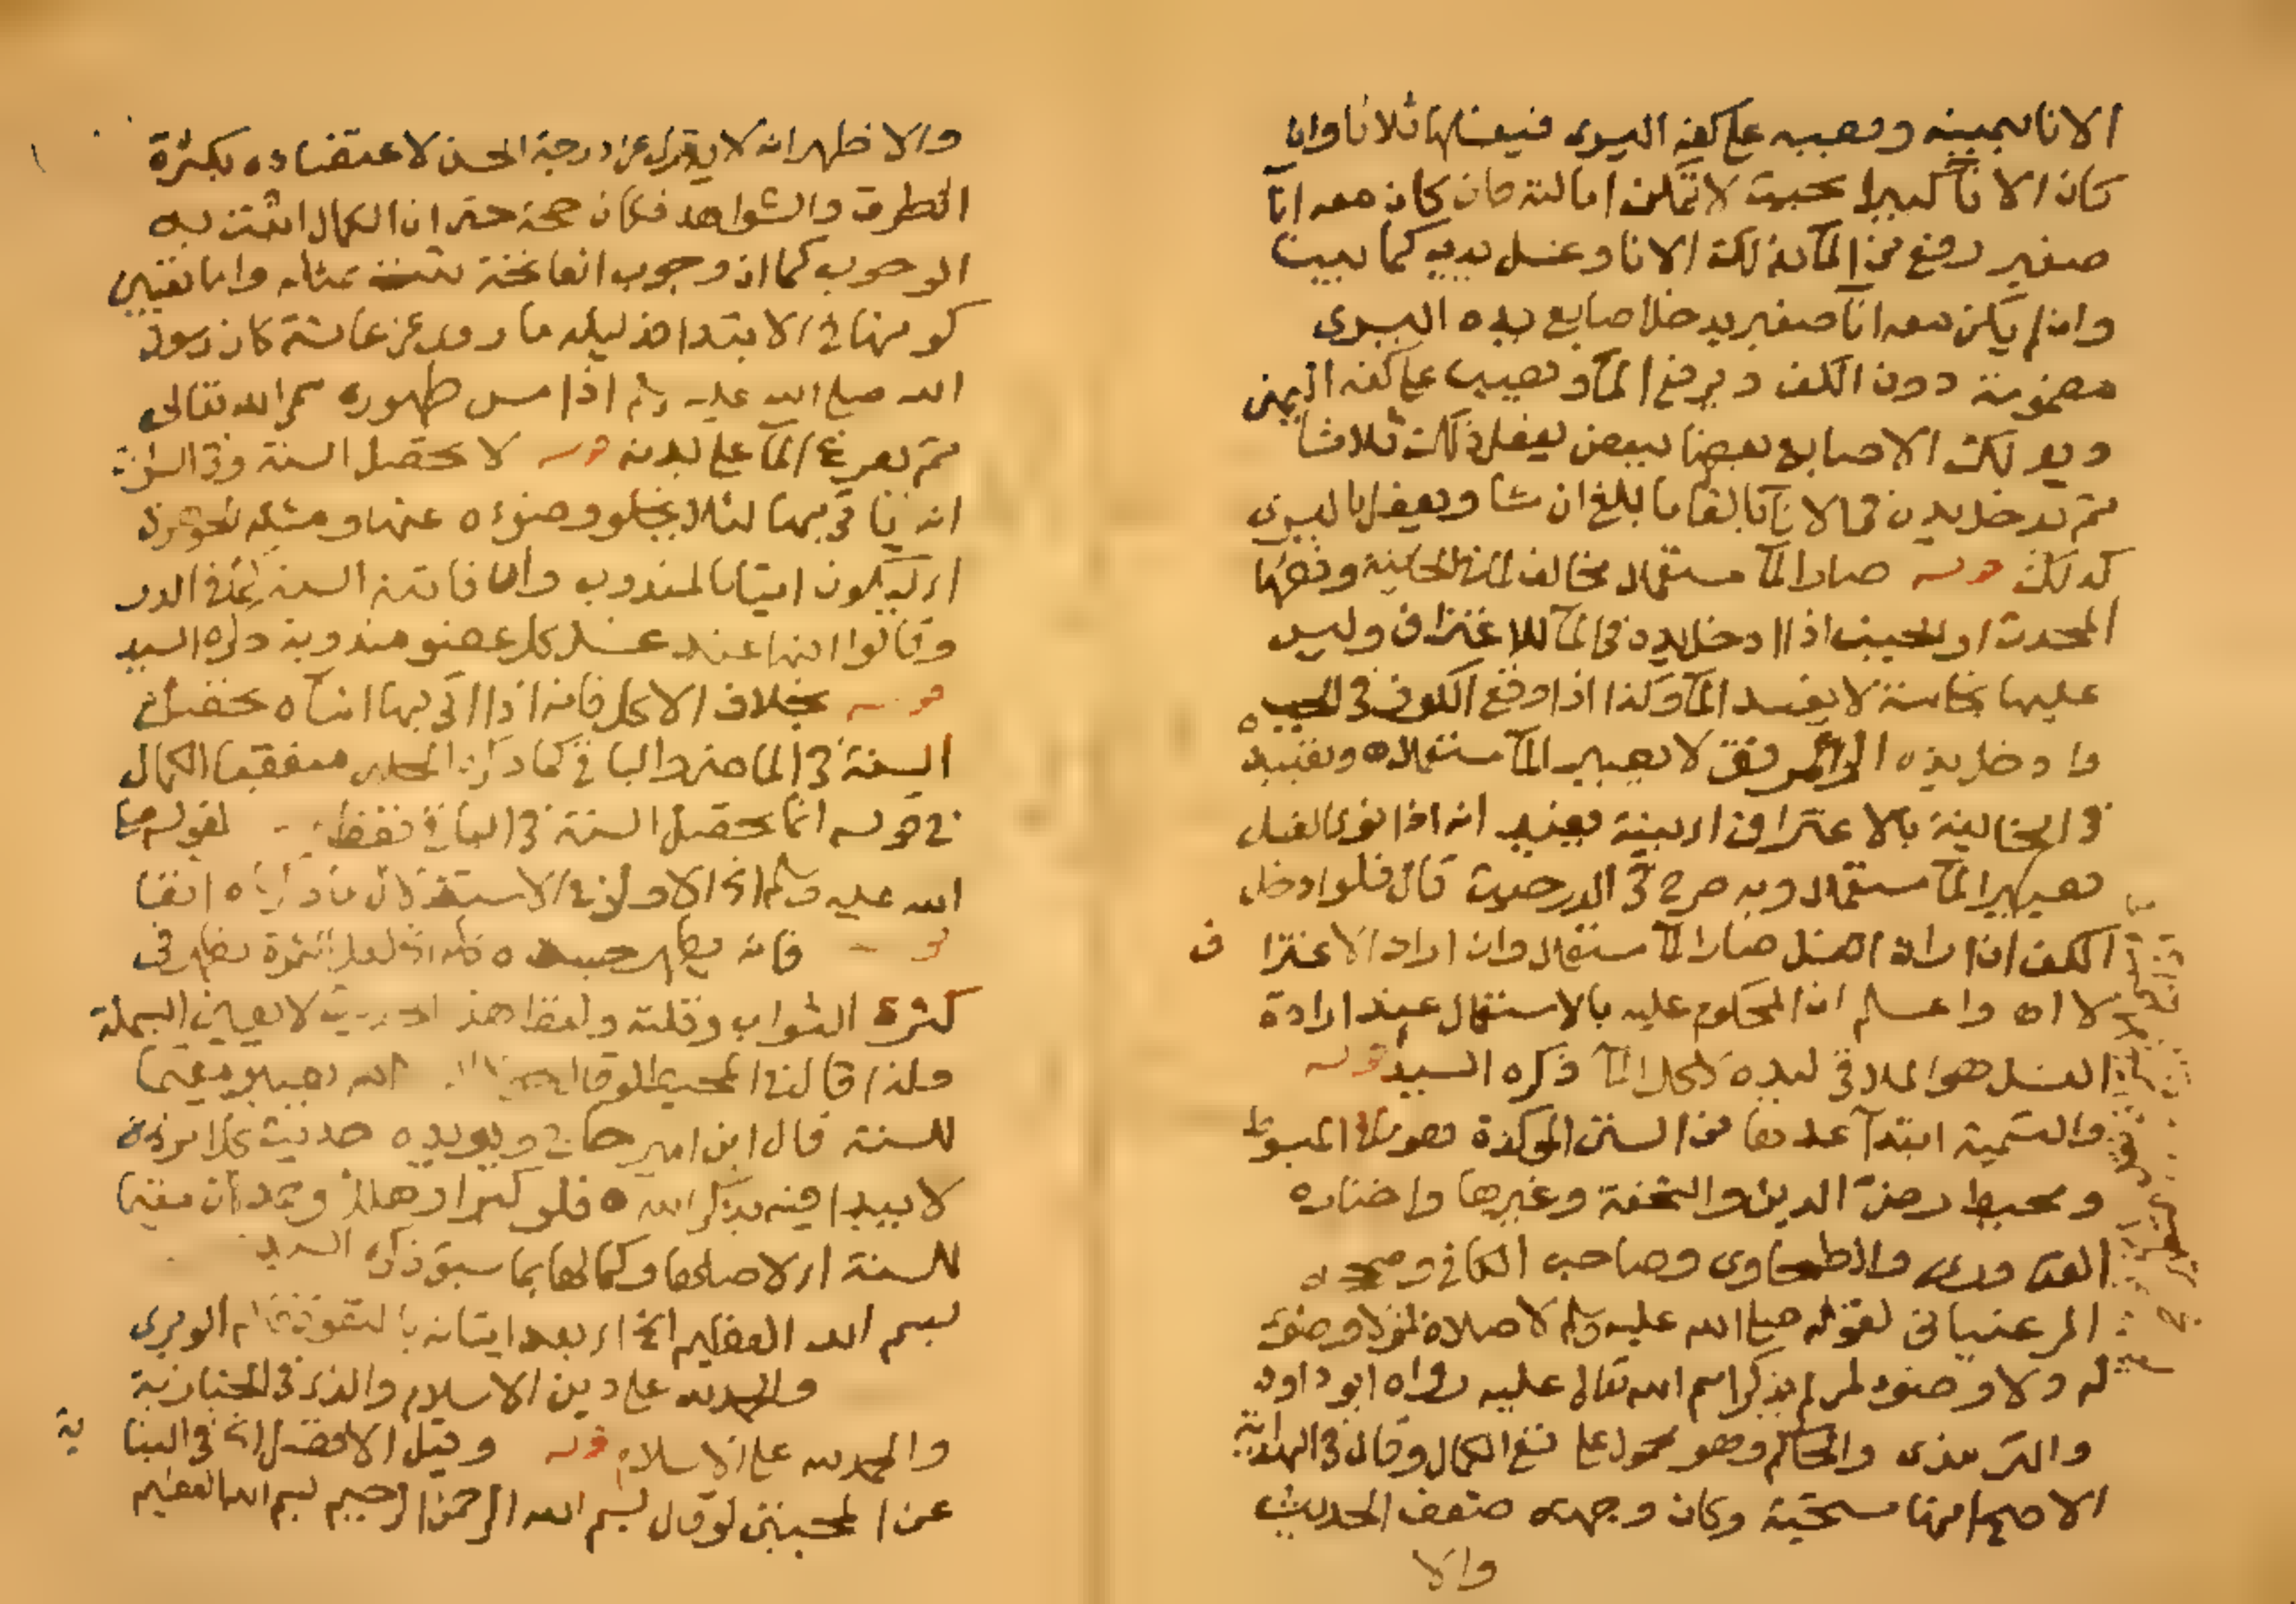 الانا بيمينه ويصبه على كفه اليسرى فيغسلها ثلاثا وان
كان الاناء كبيرا بحيث لا تمكن امالته فان كان معه اناء
صغير رفع من الماء بذلك الانا وغسل يديه كما بينت
وان لم يكن معه اناء صغير يدخل اصابع يده اليسرى
مضمومة دون الكف ويرفع الماء ويصب على كفه اليمنى
ويدلك الاصابع بعضها ببعض يفعل ذلك ثلاثا
ثم يدخل يده في الاناء بالغا ما بلغ ان شا ويفعل باليسرى
كذلك قوله صار الماء مستعملا مخالف لما في الخانية ونصها
المحدث او الجنب اذا ادخل يده في الماء للاغتراف وليس
عليها نجاسة لا يفسد الماء وكذا اذا وقع الكوز في الجب
وادخل يده الى المرفق لا يصير الماء مستعملا ه وتقييد
في الخانية بالاغتراف اربينة يفيد انه اذا نوى الغسل
يصير الماء مستعملا وبه صرح في الدر حيث قال فلو ادخل
الكف ان اراد الغسل صار الماء مستعملا وان اراد الاغترا ف
لا اه واعلم ان المحكوم عليه بالاستعمال عند ارادة
الغسل هو الملاقي ليده لا كل الماء ذكره السيد قوله
والتسمية ابتداء عدها من السنن المؤكدة هو ما في المبسوط
ومحيط رضي الدين والتحفة وغيرها واختاره
القدوري والطحاوي وصاحب الكافي وصححه
المرغيناني لقوله صلى الله عليه وسلم لا صلاة لمن لا وضوء
له ولا وضوء لمن لم يذكر اسم الله تعالى عليه رواه ابو داود
والترمذي والحاكم وهو محمول على نفي الكمال وقال في الهداية
الاصح انها مستحبة وكان وجهه ضعف الحديث
والا
والاظهر انه لا ينزل عن درجة الحسن لاعتضاده بكثرة
الطرق والشواهد فكان حجة حتى ان الكمال اثبت به
الوجوب كما ان وجوب الفاتحة ثبت بمثله واما تعيين
كونها في الابتدا فدليله ما روي عن عائشة كان رسول
الله صلى الله عليه وسلم اذا مس طهوره سمى الله تعالى
ثم يفرغ الماء على يديه قوله لا تحصل السنة وفي السراج
انه ياتي بها لئلا يخلو وضوءه عنها ومثله في الجوهرة
اي ليكون اتيانا لمندوب وان فاتته السنة لما في الدرر
وقالوا انها عند غسل كل عضو مندوبة ذكره السيد
قوله بخلاف الاكل فانه اذا اتى بها اثناءه تحصل
السنة في الماضي والباقي كما ذكره الحلبي متعقبا الكمال
في قوله انما تحصل السنة في الباقي فقط لقوله صلى
الله عليه وسلم الخ الاولى في الاستدلال ما ذكرناه انفا
قوله فانه يطهر جسده كله الخ لعل الثمرة تظهر في
كثرة الثواب وقلته ولفظ هذا الحديث لا يعين البسملة
ولذا قال في المحيط لو قال الله يصير مقيما
للسنة قال ابن امير حاج ويؤيده حديث كل امر ذي
لا يبدا فيه بذكر الله ه فلو كبر او هلل وحمد كان مقيما
للسنة اي لاصلها وكمالها بما سبق ذكره السيد
بسم الله العظيم الخ اي بعد اتيانه بالتعوذ الوبري
والحمد لله على دين الاسلام والذي في الخبازية
والحمد لله على الاسلام قوله وقيل الافضل الخ في البنا ية
عن المجتبى لو قال بسم الله الرحمن الرحيم بسم الله العظيم